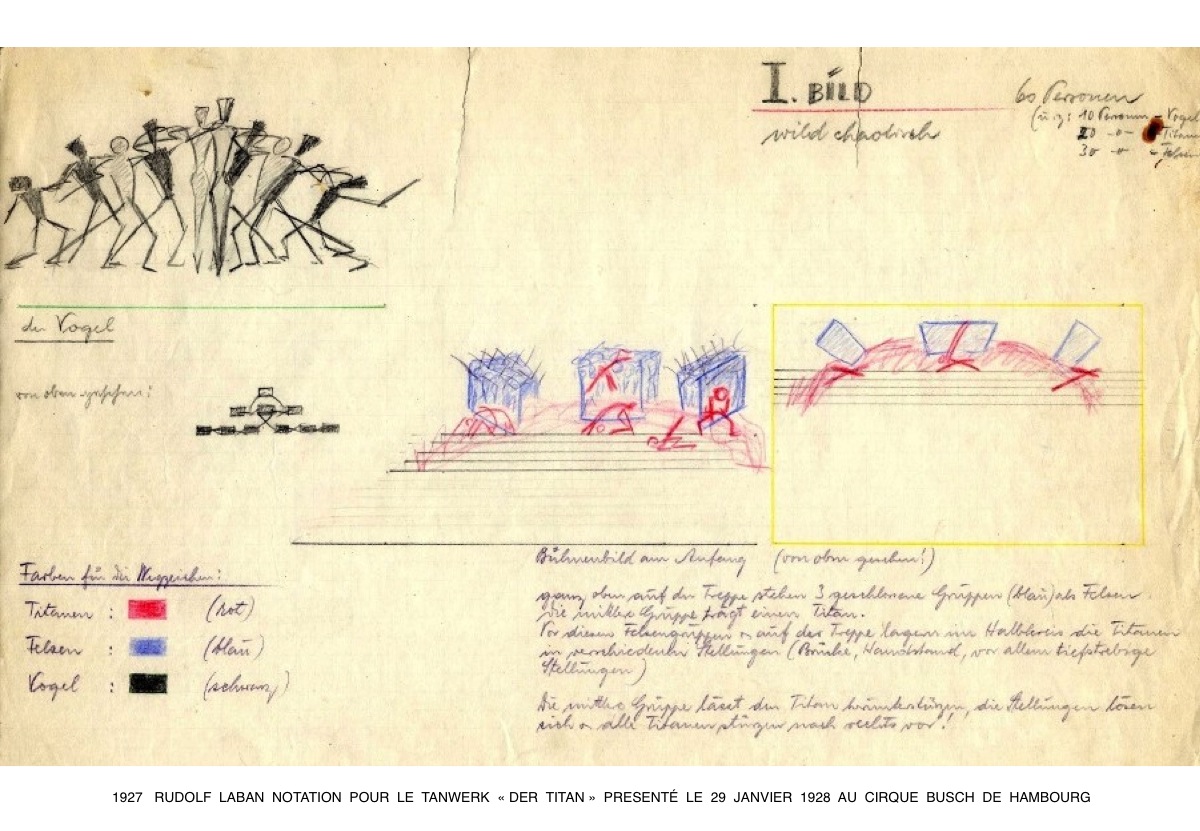 I. BILD
wild chaotisch
60 Personen
(u. z: 10 Personen - Vogel
20 -"- - Titan
30 -"- - Felsen
der Vogel
von oben gesehen!
Farben für die Wegzeichen:
Titanen : (rot)
Felsen : (blau)
Vogel : (schwarz)
Bühnenbild am Anfang (von oben gesehen!)
ganz oben auf der Treppe stehen 3 geschlossene Gruppen (blau) als Felsen.
Die mittlere Gruppe trägt einen Titan.
Vor diesen Felsengruppen auf der Treppe lagern im Halbkreis die Titanen
in verschiedenen Stellungen (Brücke, Handstand, vor allem tiefstrebige
Stellungen)
Die mittlere Gruppe lässt den Titan herunterstürzen, die Stellungen lösen
sich alle Titanen stürzen nach rechts vor!
1927 RUDOLF LABAN NOTATION POUR LE TANWERK « DER TITAN » PRESENTÉ LE 29 JANVIER 1928 AU CIRQUE BUSCH DE HAMBOURG